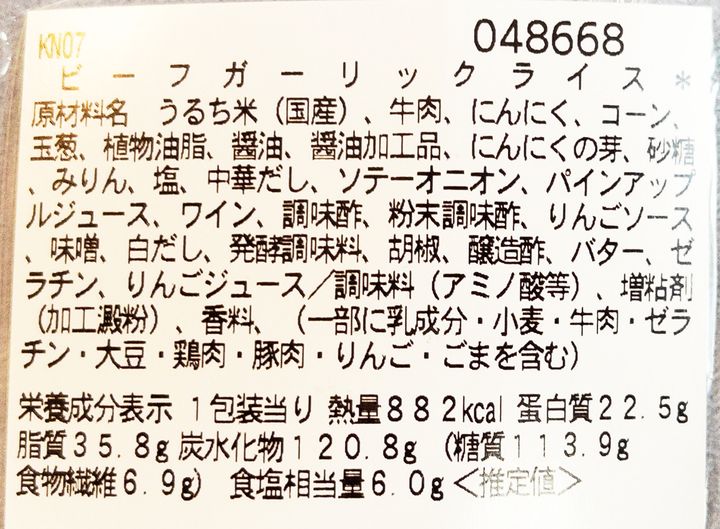 KN07 048668
ビーフガーリックライス＊
原材料名 うるち米（国産）、牛肉、にんにく、コーン、
玉葱、植物油脂、醤油、醤油加工品、にんにくの芽、砂糖
、みりん、塩、中華だし、ソテーオニオン、パインアップ
ルジュース、ワイン、調味酢、粉末調味酢、りんごソース
、味噌、白だし、発酵調味料、胡椒、醸造酢、バター、ゼ
ラチン、りんごジュース／調味料（アミノ酸等）、増粘剤
（加工澱粉）、香料、（一部に乳成分・小麦・牛肉・ゼラ
チン・大豆・鶏肉・豚肉・りんご・ごまを含む）
栄養成分表示 １包装当り 熱量８８２kcal 蛋白質２２.５g
脂質３５.８g 炭水化物１２０.８g （糖質１１３.９g
食物繊維６.９g） 食塩相当量６.０g＜推定値＞